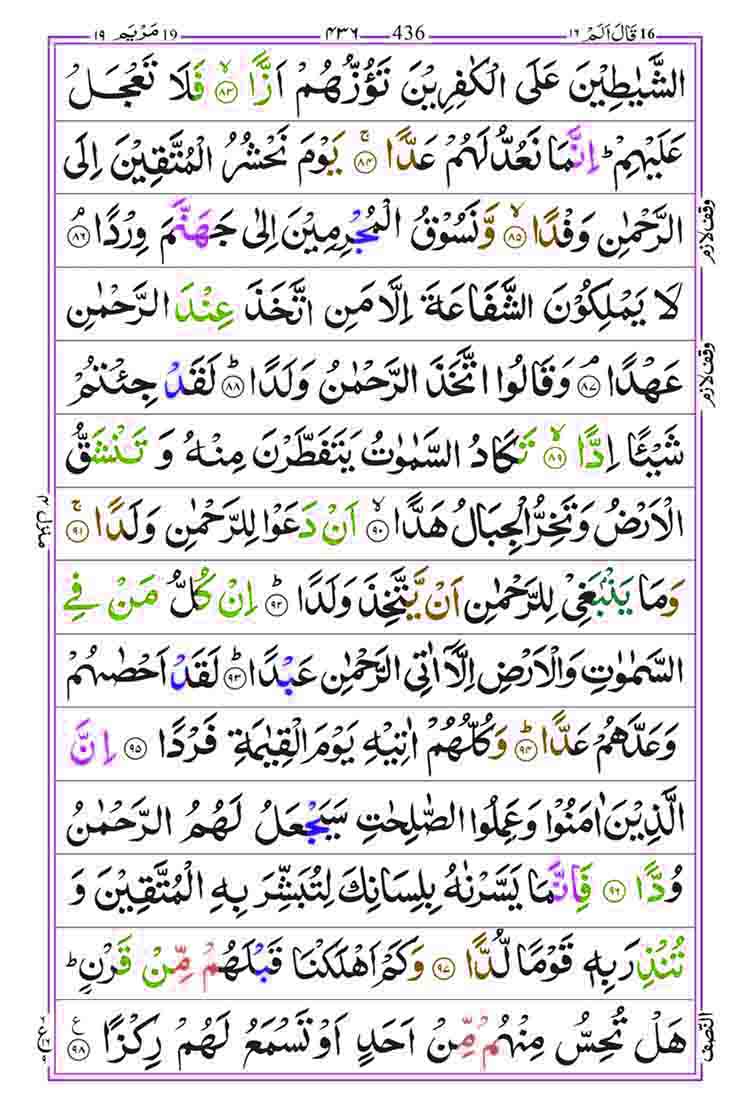 19 مَرْيَم ١٩
436 ٤٣٦
16 قَالَ اَلَمْ ١٦
الشَّيٰطِيْنَ عَلَى الْكٰفِرِيْنَ تَؤُزُّهُمْ اَزًّا ۙ‏﴿۸۳﴾ فَلَا تَعْجَلْ
عَلَيْهِمْ ؕ اِنَّمَا نَعُدُّ لَهُمْ عَدًّا ۚ‏﴿۸۴﴾ يَوْمَ نَحْشُرُ الْمُتَّقِيْنَ اِلَى
الرَّحْمٰنِ وَفْدًا ۙ‏﴿۸۵﴾ وَّنَسُوْقُ الْمُجْرِمِيْنَ اِلٰى جَهَنَّمَ وِرْدًا ۘ‏﴿۸۶﴾
وقف لازم
لَا يَمْلِكُوْنَ الشَّفَاعَةَ اِلَّا مَنِ اتَّخَذَ عِنْدَ الرَّحْمٰنِ
عَهْدًا ۘ‏﴿۸۷﴾ وَقَالُوا اتَّخَذَ الرَّحْمٰنُ وَلَدًا ؕ‏﴿۸۸﴾ لَقَدْ جِئْتُمْ
وقف لازم
شَيْئًا اِدًّا ۙ‏﴿۸۹﴾ تَكَادُ السَّمٰوٰتُ يَتَفَطَّرْنَ مِنْهُ وَ تَنْشَقُّ
الْاَرْضُ وَتَخِرُّ الْجِبَالُ هَدًّا ۙ‏﴿۹۰﴾ اَنْ دَعَوْا لِلرَّحْمٰنِ وَلَدًا ۚ‏﴿۹۱﴾
منزل ۴
وَمَا يَنْۢبَغِىْ لِلرَّحْمٰنِ اَنْ يَّتَّخِذَ وَلَدًا ؕ‏﴿۹۲﴾ اِنْ كُلُّ مَنْ فِى
السَّمٰوٰتِ وَالْاَرْضِ اِلَّاۤ اٰتِى الرَّحْمٰنِ عَبْدًا ؕ‏﴿۹۳﴾ لَقَدْ اَحْصٰٮهُمْ
وَعَدَّهُمْ عَدًّا ؕ‏﴿۹۴﴾ وَكُلُّهُمْ اٰتِيْهِ يَوْمَ الْقِيٰمَةِ فَرْدًا ‏﴿۹۵﴾ اِنَّ
الَّذِيْنَ اٰمَنُوْا وَعَمِلُوا الصّٰلِحٰتِ سَيَجْعَلُ لَهُمُ الرَّحْمٰنُ
وُدًّا ‏﴿۹۶﴾ فَاِنَّمَا يَسَّرْنٰهُ بِلِسَانِكَ لِتُبَشِّرَ بِهِ الْمُتَّقِيْنَ وَ
تُنْذِرَ بِهٖ قَوْمًا لُّدًّا ‏﴿۹۷﴾ وَكَمْ اَهْلَكْنَا قَبْلَهُمْ مِّنْ قَرْنٍ ؕ
هَلْ تُحِسُّ مِنْهُمْ مِّنْ اَحَدٍ اَوْ تَسْمَعُ لَهُمْ رِكْزًا ‏﴿۹۸﴾ ع
النصف